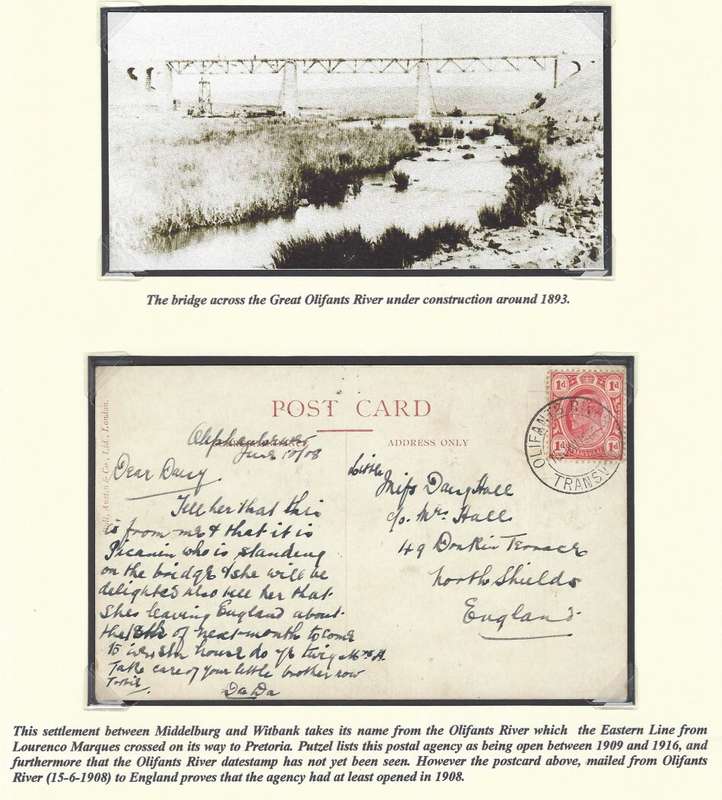 The bridge across the Great Olifants River under construction around 1893.
POST CARD
ADDRESS ONLY
& Co., Ltd., London.
1d 1d
OLIFANTS RIV
TRANSV
June 15/08
Dear Daisy
Tell her that this
is from me & that it is
Picanin who is standing
on the bridge & she will be
delighted also tell her that
Shes leaving England about
the of next month to come
to house do ye twig Mrs H.
Take care of your little brother now
DaDa
Little
Miss Daisy Hall
c/o Mrs Hall
49 Donkin Terrace
North Shields
England
This settlement between Middelburg and Witbank takes its name from the Olifants River which the Eastern Line from
Lourenco Marques crossed on its way to Pretoria. Putzel lists this postal agency as being open between 1909 and 1916, and
furthermore that the Olifants River datestamp has not yet been seen. However the postcard above, mailed from Olifants
River (15-6-1908) to England proves that the agency had at least opened in 1908.